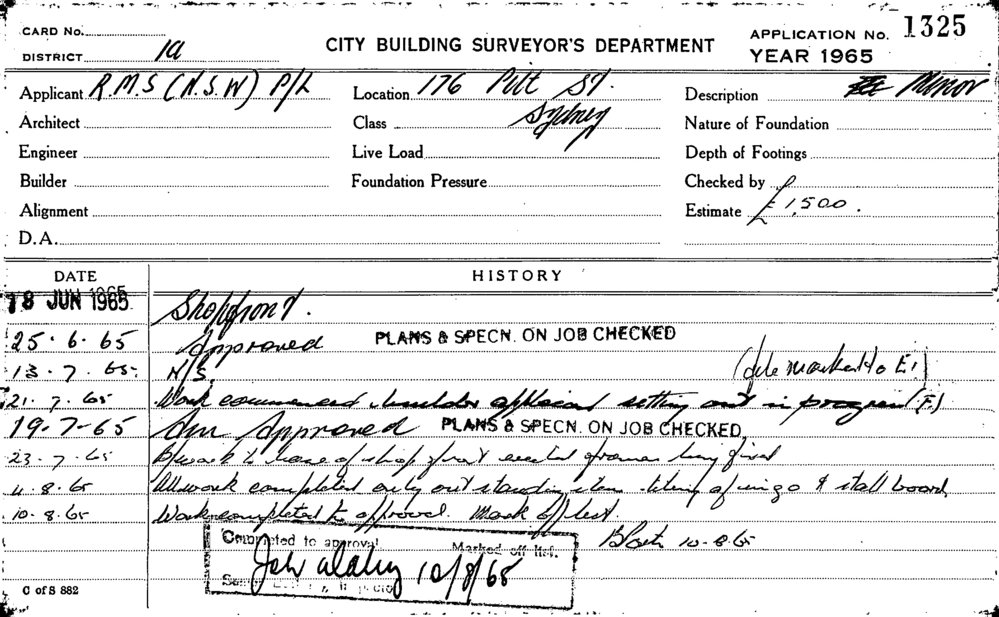 CARD No.
DISTRICT 1a
CITY BUILDING SURVEYOR'S DEPARTMENT
APPLICATION No. 1325
YEAR 1965
Applicant R.M.S (N.S.W) P/L
Location 176 Pitt St.
Description Minor
Architect
Class Sydney
Nature of Foundation
Engineer
Live Load
Depth of Footings
Builder
Foundation Pressure
Checked by
Alignment
Estimate £1,500.
D.A.
DATE
HISTORY
18 JUN 1965
Shopfront.
25.6.65 Approved PLANS & SPECN. ON JOB CHECKED
13.7.65 N/S. (file marked to E.)
21.7.65 Work commenced builder applicant setting out in progress (F.)
19-7-65 Am Approved PLANS & SPECN. ON JOB CHECKED
23.7.65 B/work to base of shop front erected frames being fixed
4.8.65 All work completed only outstanding item tiling of ingo & stall board
10.8.65 Work completed to approval. Mark off list.
10-8-65
Completed to approval Marked off list.
10/8/65
C of S 882